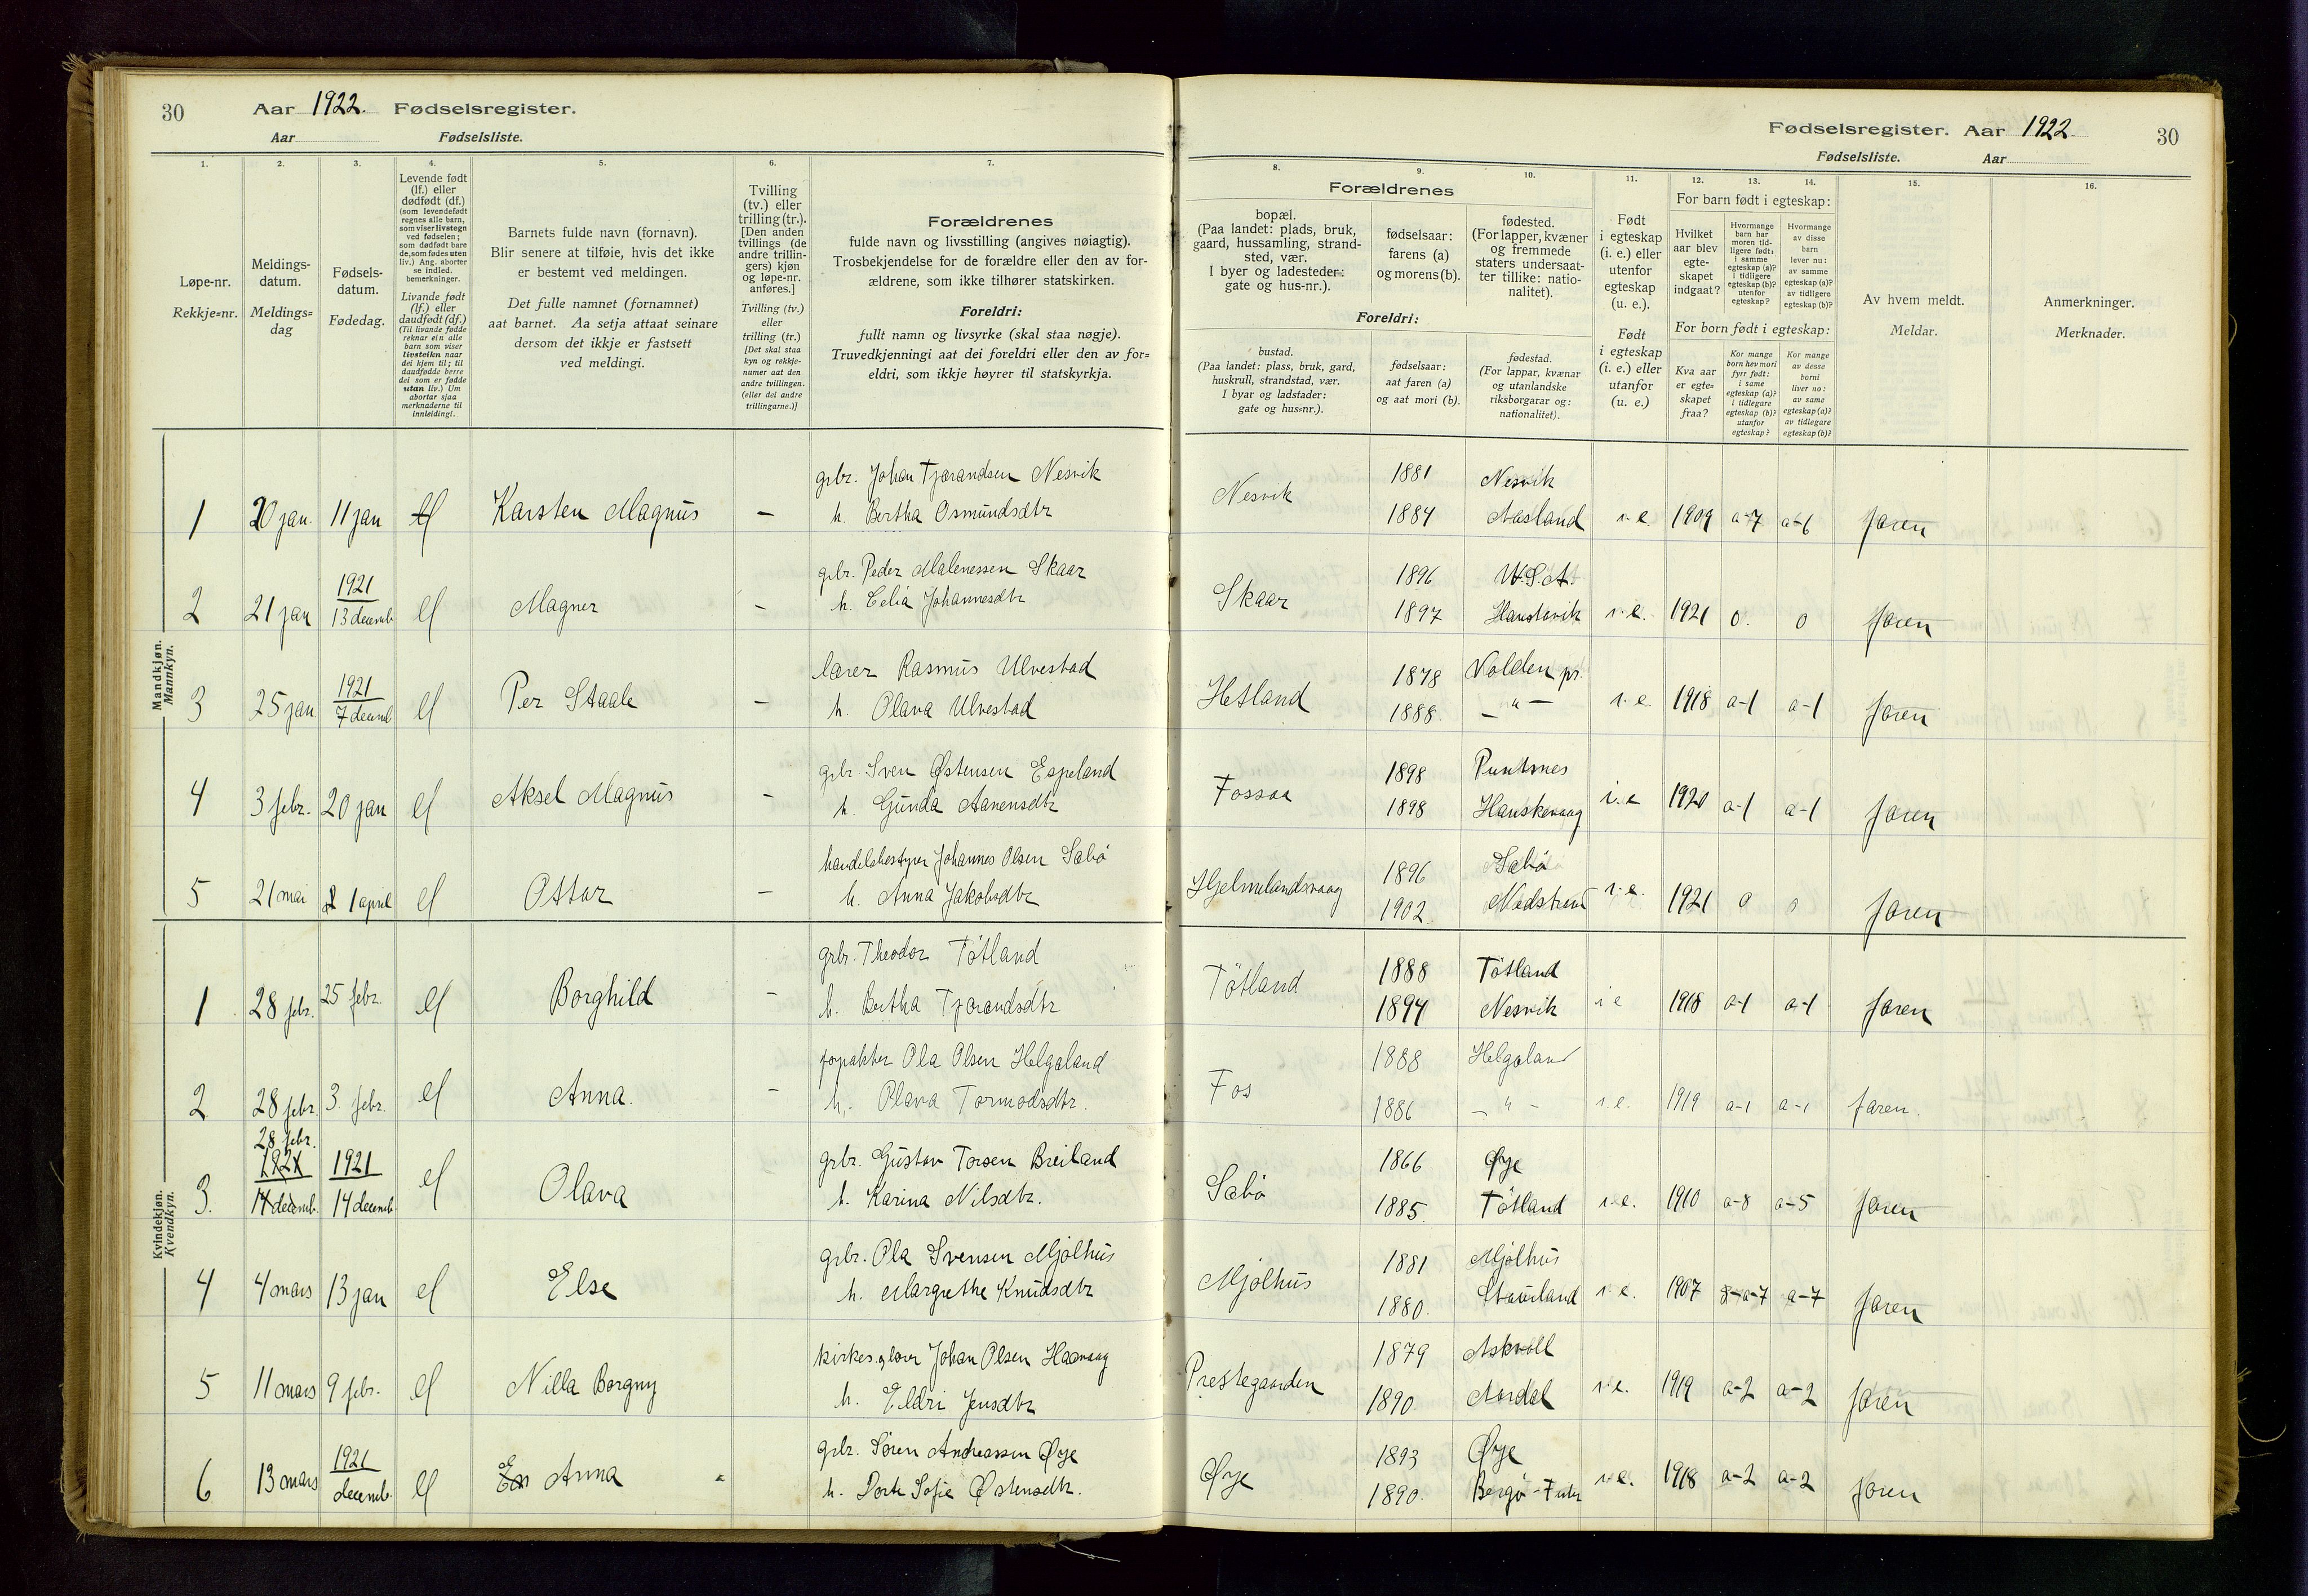 30 Aar 1922. Fødselsregister.
Aar Fødselsliste.
Fødselsregister. Aar 1922 30
Fødselsliste. Aar
1. 2. 3. 4. 5. 6. 7.
Løpe-nr.
Rekkje=nr.
Meldings-
datum.
Meldings=
dag
Fødsels-
datum.
Fødedag.
Levende født
(lf.) eller
dødfødt (df.)
(som levendefødt
regnes alle barn,
som viser livstegn
ved fødselen;
som dødfødt bare
de, som fødes uten
liv.) Ang. aborter
se indled.
bemerkninger.
Livande født
(lf.) eller
daudfødt (df.)
(Til livande fødde
reknar ein alle
barn som viser
livsteikn naar
dei kjem til; til
daudfødde berre
dei som er fødde
utan liv.) Um
abortar sjaa
merknaderne til
innleidingi.
Barnets fulde navn (fornavn).
Blir senere at tilføie, hvis det ikke
er bestemt ved meldingen.
Det fulle namnet (fornamnet)
aat barnet. Aa setja attaat seinare
dersom det ikkje er fastsett
ved meldingi.
Tvilling
(tv.) eller
trilling (tr.).
[Den anden
tvillings (de
andre trillin-
gers) kjøn
og løpe-nr.
anføres.]
Tvilling (tv.)
eller
trilling (tr.)
[Det skal staa
kyn og rekkje-
numer aat den
andre tvillingen.
(eller dei andre
trillingarne.)]
Forældrenes
fulde navn og livsstilling (angives nøiagtig).
Trosbekjendelse for de forældre eller den av for-
ældrene, som ikke tilhører statskirken.
Foreldri:
fullt namn og livsyrke (skal staa nøgje).
Truvedkjenningi aat dei foreldri eller den av for=
eldri, som ikkje høyrer til statskyrkja.
8. 9. 10. 11. 12. 13. 14. 15. 16.
Forældrenes
bopæl.
(Paa landet: plads, bruk,
gaard, hussamling, strand-
sted, vær.
I byer og ladesteder:
gate og hus-nr.).
fødselsaar:
farens (a)
og morens (b).
fødested.
(For lapper, kvæner
og fremmede
staters undersaat-
ter tillike: natio-
nalitet).
Foreldri:
bustad.
(Paa landet: plass, bruk, gard,
huskrull, strandstad, vær.
I byar og ladstader:
gate og hus=nr.).
fødselsaar:
aat faren (a)
og aat mori (b).
fødestad.
(For lappar, kvænar
og utanlandske
riksborgarar og:
nationalitet).
Født
i egteskap
(i. e.) eller
utenfor
egteskap
(u. e.).
Født
i egteskap
(i. e.) eller
utanfor
(u. e.)
For barn født i egteskap:
Hvilket
aar blev
egte-
skapet
indgaat?
Hvormange
barn har
moren tid-
ligere født:
i samme
egteskap (a)?
i tidligere
egteskap (b)?
utenfor
egteskap?
Hvormange
av disse
barn
lever nu:
av samme
egteskap (a)?
av tidligere
egteskap (b)?
For born født i egteskap:
Kva aar
er egte=
skapet
fraa?
Kor mange
born hev mori
fyrr født:
i same
egteskap (a)?
i tidlegare
egteskap (b)?
utanfor
egteskap?
Kor mange
av desse
borni
liver no:
av same
egteskap (a)?
av tidlegare
egteskap (b)?
Av hvem meldt.
Meldar.
Anmerkninger.
Merknader.
Mandkjøn.
Mannkyn.
grbr. Johan Tjørandsen Nesvik Nesvik 1881 Nesvik
1 20 jan. 11 jan lf Karsten Magnus - h. Bertha Osmundsdtr 1884 Aasland i. e 1909 a-7 a-6 Jøren
1921 grbr. Peder Malenessen Skaar Skaar 1896 U.S.A.
2 21 jan 13 decemb lf Magner - h. Celia Johannesdtr 1897 i. e. 1921 0. 0 Jøren
1921 lærer Rasmus Ulvestad Hetland 1878 Volden pr.
3 25 jan 7 decemb lf Per Staale - h. Olava Ulvestad 1888. - " - i. e. 1918 a-1 a-1 Jøren
grbr. Sven Østensen Espeland Fossaa 1898 Puntsnes
4 3 febr. 20 jan lf Aksel Magnus - h. Gunda Aanensdtr 1898 Hauskevaag i. e 1920 a-1 a-1 Jøren
handelsbestyrer Johannes Olsen Sæbö Hjelmelandsvaag 1896 Sæbö
5 21 mai 1 april lf Ottar - h. Anna Jakobsdtr 1902. Nedstrand i. e. 1921 0 0 Jøren
Kvindekjøn.
Kvendkyn.
grbr. Theodor Tötland Tötland 1888 Tötland
1 28 febr. 25 febr. lf Borghild - h. Bertha Tjørandsdtr 1894 Nesvik i e 1918 a-1 a-1 Jøren
forpakter Ola Olsen Helgaland Fos 1888 Helgaland
2 28 febr. 3. febr. lf Anna. - h. Olava Tormodsdtr. 1886 - " - i. e. 1919 a-1 a-1 Jøren.
28 febr.
1921 1921 grbr. Gustav Torsen Breiland Sæbö 1866 Øye
3. 14 decemb. 14 decemb lf Olava h. Karina Nilsdtr. 1885. Tötland i. e. 1910 a-8 a-5 Jøren
grbr. Ola Svensen Mjölhus Mjölhus 1881 Mjölhus
4 4 mars 13 jan lf Else h. Margrethe Knudsdtr 1880. i. e. 1907 8 a-7 a-7 Jøren
kirkesanger Johan Olsen Haavaag Prestegaarden 1879 Askvoll
5 11 mars 9 febr. lf Nilla Borgny h. Eldri Jensdtr 1890. Aardal i. e. 1919 a-2 a-2 Jøren
1921 grbr. Sören Andreassen Øye Øye 1893 Øye
6 13 mars decemb. lf Anna h. Sofie Østensdtr. 1890. i. e. 1918 a-2 a-2 Jøren